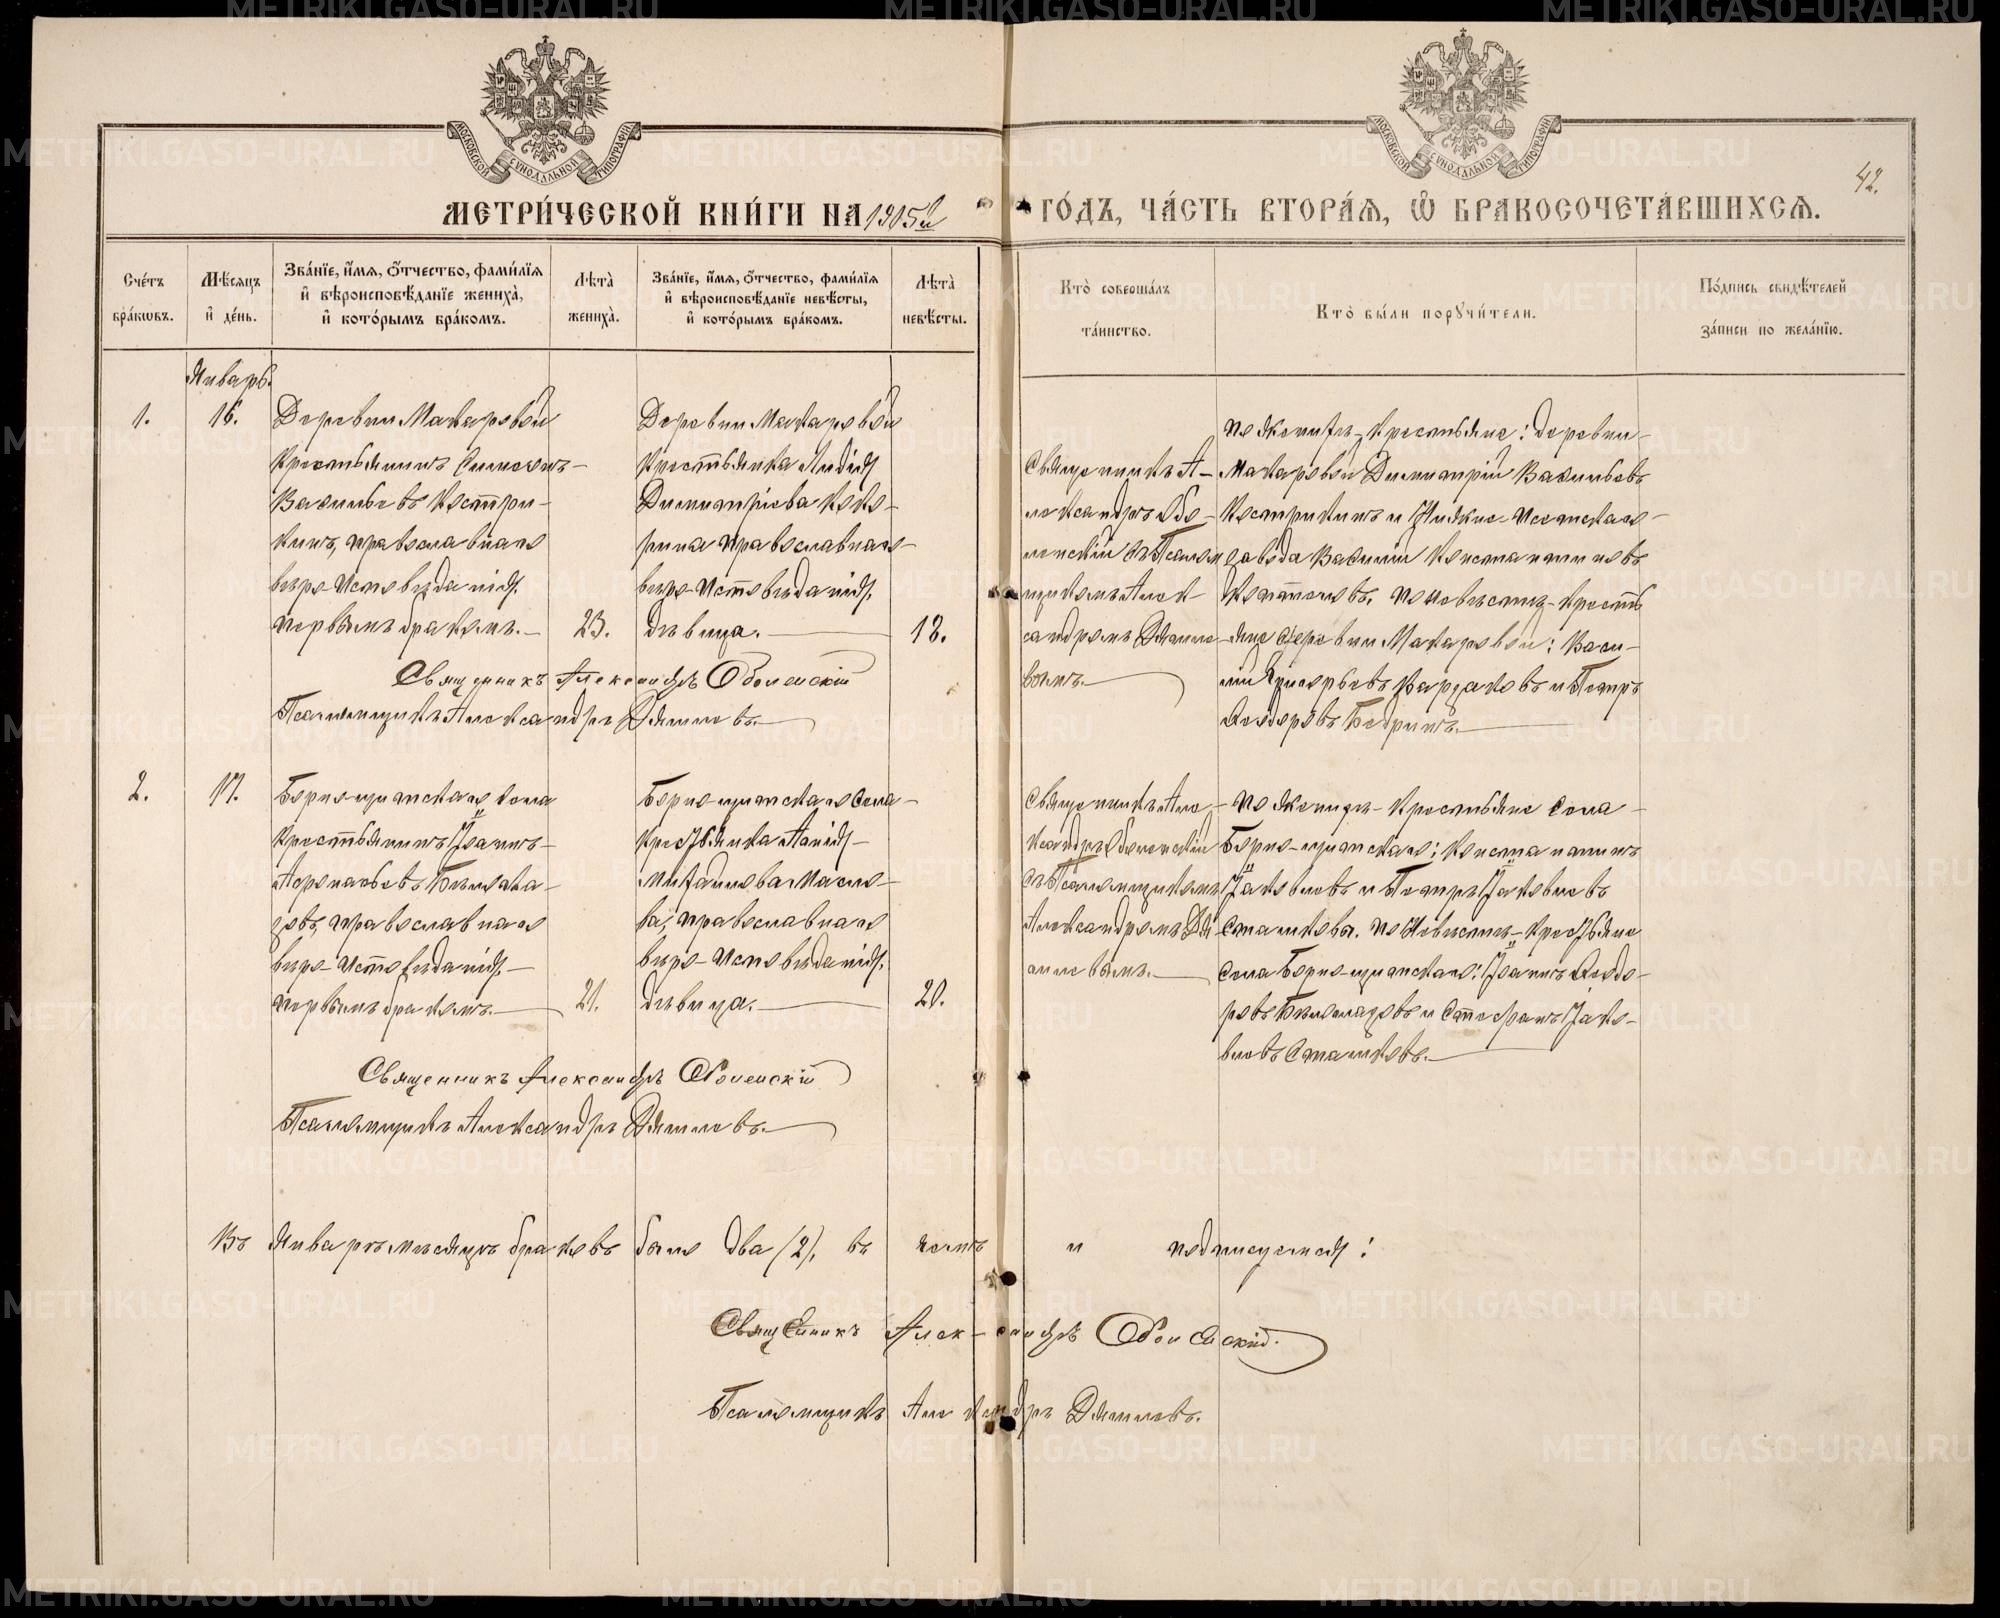 МОСКОВСКОЙ СУНОДАЛЬНОЙ ТИПОГРАФІИ
МОСКОВСКОЙ СУНОДАЛЬНОЙ ТИПОГРАФІИ
42.
МЕТРИ́ЧЕСКОЙ КНИ́ГИ НА 1905й ГО́ДЪ, ЧА́СТЬ ВТОРА́Я, Ѡ БРАКОСОЧЕТА́ВШИХСЯ.
Сче́тъ бра́кѡвъ.
Мѣ́сяцъ и де́нь.
Зва́нїе, и́мя, ѻ́тчество, фами́лїя и вѣроисповѣ́данїе жениха̀, и кото́рымъ бра́комъ.
Лѣ́та жениха̀.
Зва́нїе, и́мя, ѻ́тчество, фами́лїя и вѣроисповѣ́данїе невѣ́сты, и кото́рымъ бра́комъ.
Лѣ́та невѣ́сты.
Кто̀ соверша́лъ та́инство.
Кто̀ бы́ли порꙋчи́тели.
По́дпись свидѣ́телей за́писи по жела́нїю.
Январь.
1.
16.
Деревни Макаровой
крестьянинъ Симеонъ
Васильевъ Кострикинъ, православнаго
вѣро-исповѣданія.
первымъ бракомъ.
23.
Деревни Макаровой
крестьянка Лидія
Димитріева Коко-
рина православнаго
вѣро-исповѣданія,
дѣвица.
18.
Священникъ А-
лександръ Обо-
ленскій съ Псалом
щикомъ Алек-
сандромъ Дягиле-
вымъ.
По женихѣ-крестьяне: деревни
Макаровой Димитрій Васильевъ
Кострикинъ и Нижне-Исетскаго
завода Василій Константиновъ
по невѣстѣ-кресть
яне деревни Макаровой: Васи-
лій Григорьевъ и Петръ
Ѳеодоровъ
Священникъ Александръ Оболенскій
Псаломщикъ Александръ Дягилевъ.
2.
17.
Горно-щитскаго села
крестьянинъ Іоаннъ
Аѳонасьевъ
православнаго
вѣро-исповѣданія,
первымъ бракомъ.
21.
Горно-щитскаго села
крестьянка
Михайлова Масло-
ва, православнаго
вѣро-исповѣданія,
дѣвица.
20.
Священникъ Але-
ксандръ Оболенскій
съ Псаломщикомъ
Александромъ Дя
гилевымъ.
По женихѣ-крестьяне села
Горно-щитскаго: Константинъ
Іаковлевъ и Петръ Іаковлевъ
Сташковы. По невѣстѣ-крестьяне
села Горно-щитскаго: Іоаннъ Ѳеодо-
ровъ и Стефанъ Іако-
влевъ Сташковъ.
Священникъ Александръ Оболенскій
Псаломщикъ Александръ Дягилевъ.
Въ Январѣ мѣсяцѣ браковъ было два (2), въ чемъ и подписуемся:
Священникъ Александръ Оболенскій.
Псаломщикъ Александръ Дягилевъ.
METRIKI.GASO-URAL.RU